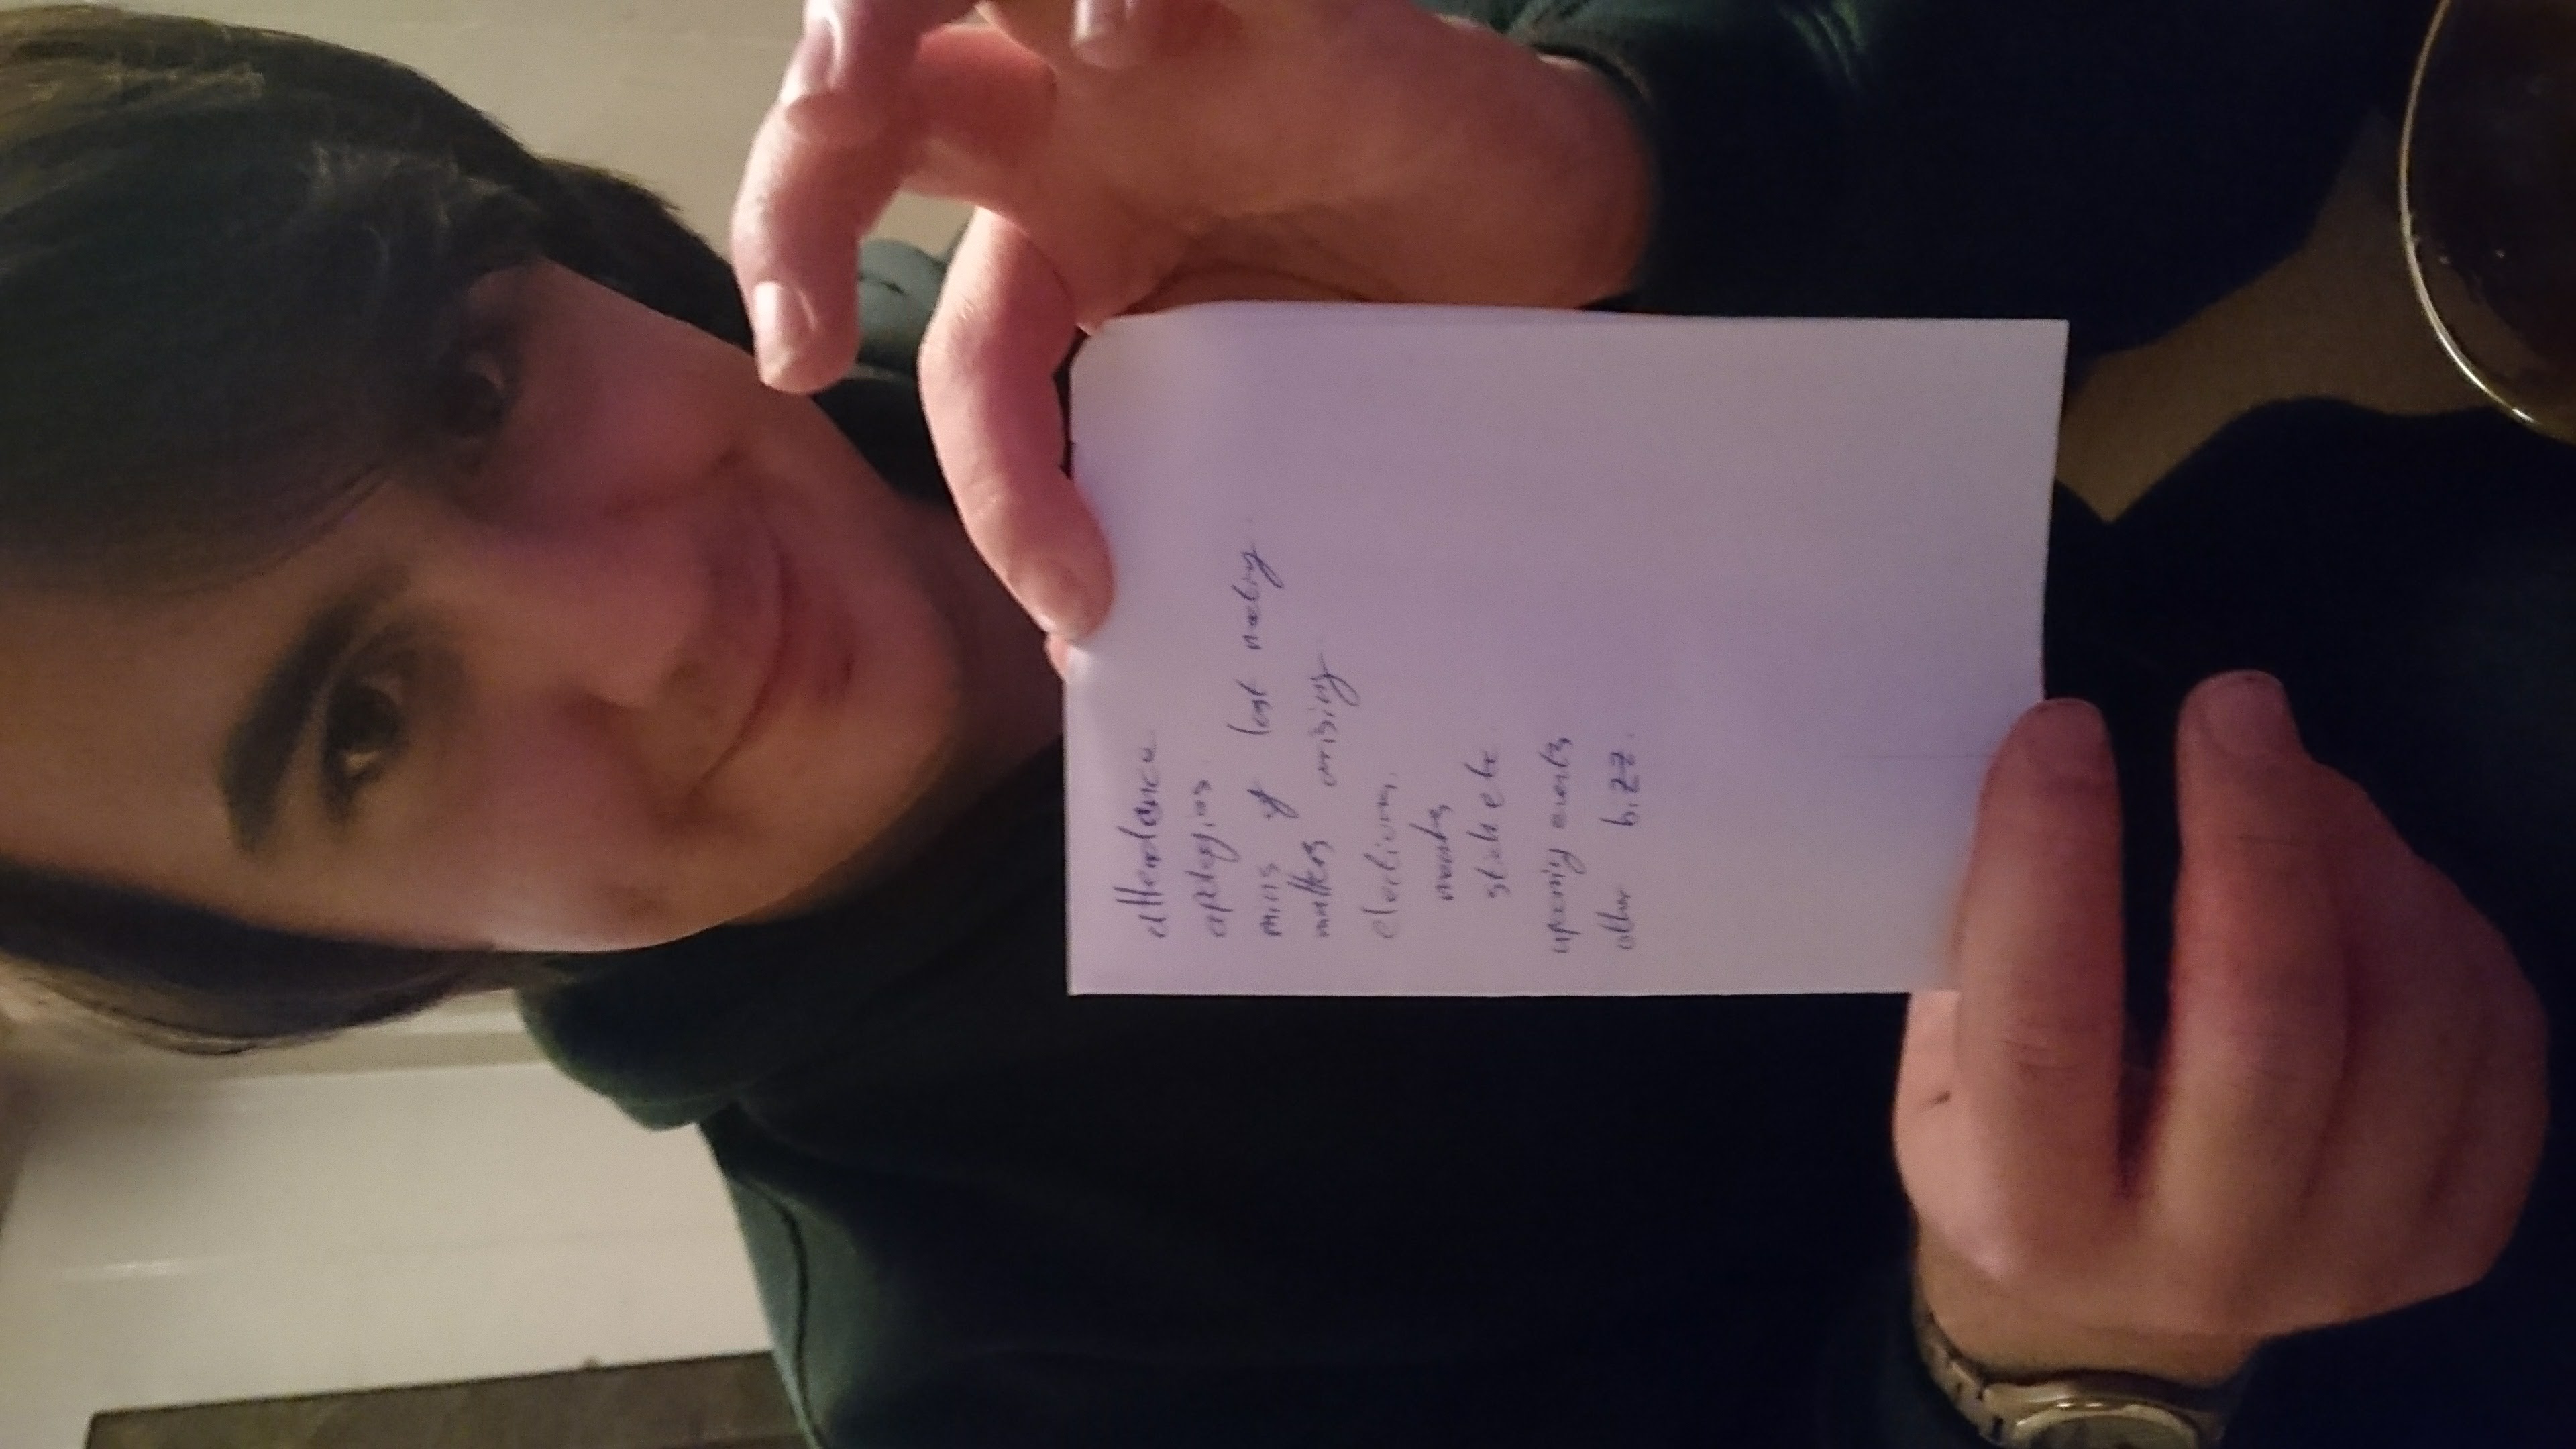 attendance.
apologies.
mins of last meeting.
matters arising.
elections.
stick etc
upcomig events
other bizz.